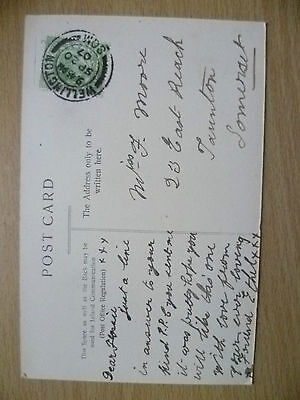 POST CARD
This Space, as well as the Back may be
used for Inland Communication.
(Post Office Regulation)
The Address only to be
written here.
WELLINGTON
SOM
x x x
Dear
just a line
in answer to your
kind P.P.C you sent me
it was pretty hope you
will like this one
with love from
your ever loving
friend
Miss F. Moore
23 East Reach
Taunton
Somerset